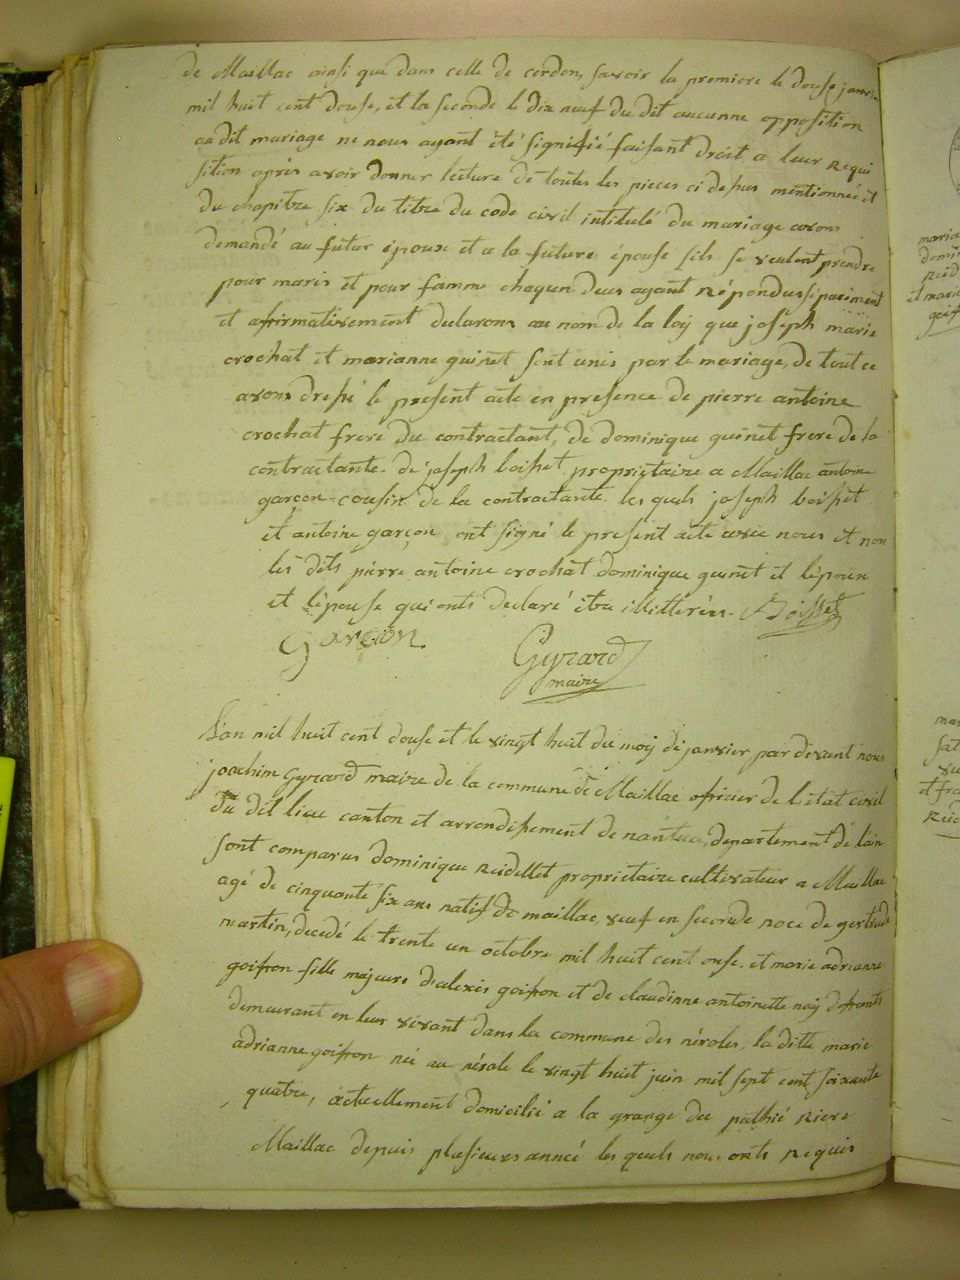 de Maillac ainsi que dans celle de cordon, savoir la premiere le douse janvie
mil huit cent douse, et la seconde le dix neuf du dit aucunne opposition
au dit mariage ne nous ayant été signifié faisant droit a leur requi
sition après avoir donner lecture de toutes les pieces ci dessus mentionnée et
du chapitre six du titre du code civil intitulé du mariage avons
demandé au futur époux et a la future épouse sils se veulent prendre
pour maris et pour famme chaqun deux ayant répondu séparément
et afirmativement declarons au nom de la loy que joseph marie
crochat et marianne guinet sont unis par le mariage, de tout ce
avons dressé le present acte en presence de pierre antoine
crochat frere du contractant, de dominique guinet frere de la
contractante. de joseph boisset proprietaire a Maillac antoine
garçon cousin de la contractante. les quels joseph boisset
et antoine garçon ont signé le present acte avec nous et non
les dits pierre antoine crochat dominique guinet et lépoux
et lépouse qui onts declaré être illitterées. Boisset
garcon
Gyrard
maire
L'an mil huit cent douse et le vingt huit du moy de janvier par devant nous
joachim Gyrard maire de la commune de Maillac officier de l'état civil
du dit lieu canton et arrondissement de nantua, departement de lain
sont comparus dominique reidellet proprietaire cultivateur a Maillac
agé de cinquante six ans natif de maillac, veuf en seconde noce de gertrude
martin, decedé le trente un octobre mil huit cent onse. et marie adrianne
goiffon fille majeure dealexis goiffon et de claudinne antoinette noy defunts
demeurant en leur vivant dans la commune des néroles, la ditte marie
adrianne goiffon née au nérole le vingt huit juin mil sept cent soixante
quatre, actuellement domicilié a la grange du pathié riere
Maillac depuis plusieurs année les quels nous onts requis